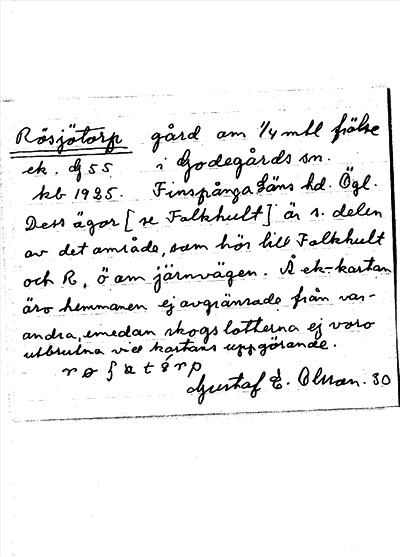 Rösjötorp gård om 1/4 mtl frälse
ek. dj 55 i Godegårds sn.
kb 1925. Finspånga Läns hd. Ögl.
Dess ägor [se Falkhult] är s. delen
av det område, som hör till Falkhult
och R, ö om järnvägen. Å ek-kartan
äro hemmanen ej avgränsade från var-
andra, emedan skogslotterna ej voro
utbrutna vid kartans uppgörande.
Gustaf E. Olsson. 30